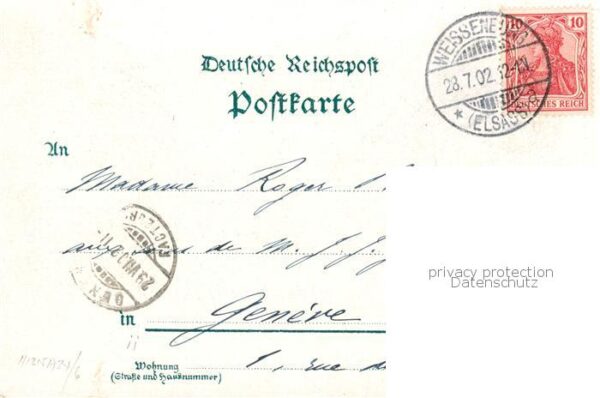 Deutsche Reichspost
Postkarte
WEISSENBURG
28.7.02.12-1N.
* (ELSASS) a
10
DEUTSCHES REICH
An
Madame Roger
aux soins de M. J. J.
29.VII.02
in Genève
Wohnung
(Straße und Hausnummer)
1, rue d
privacy protection
Datenschutz